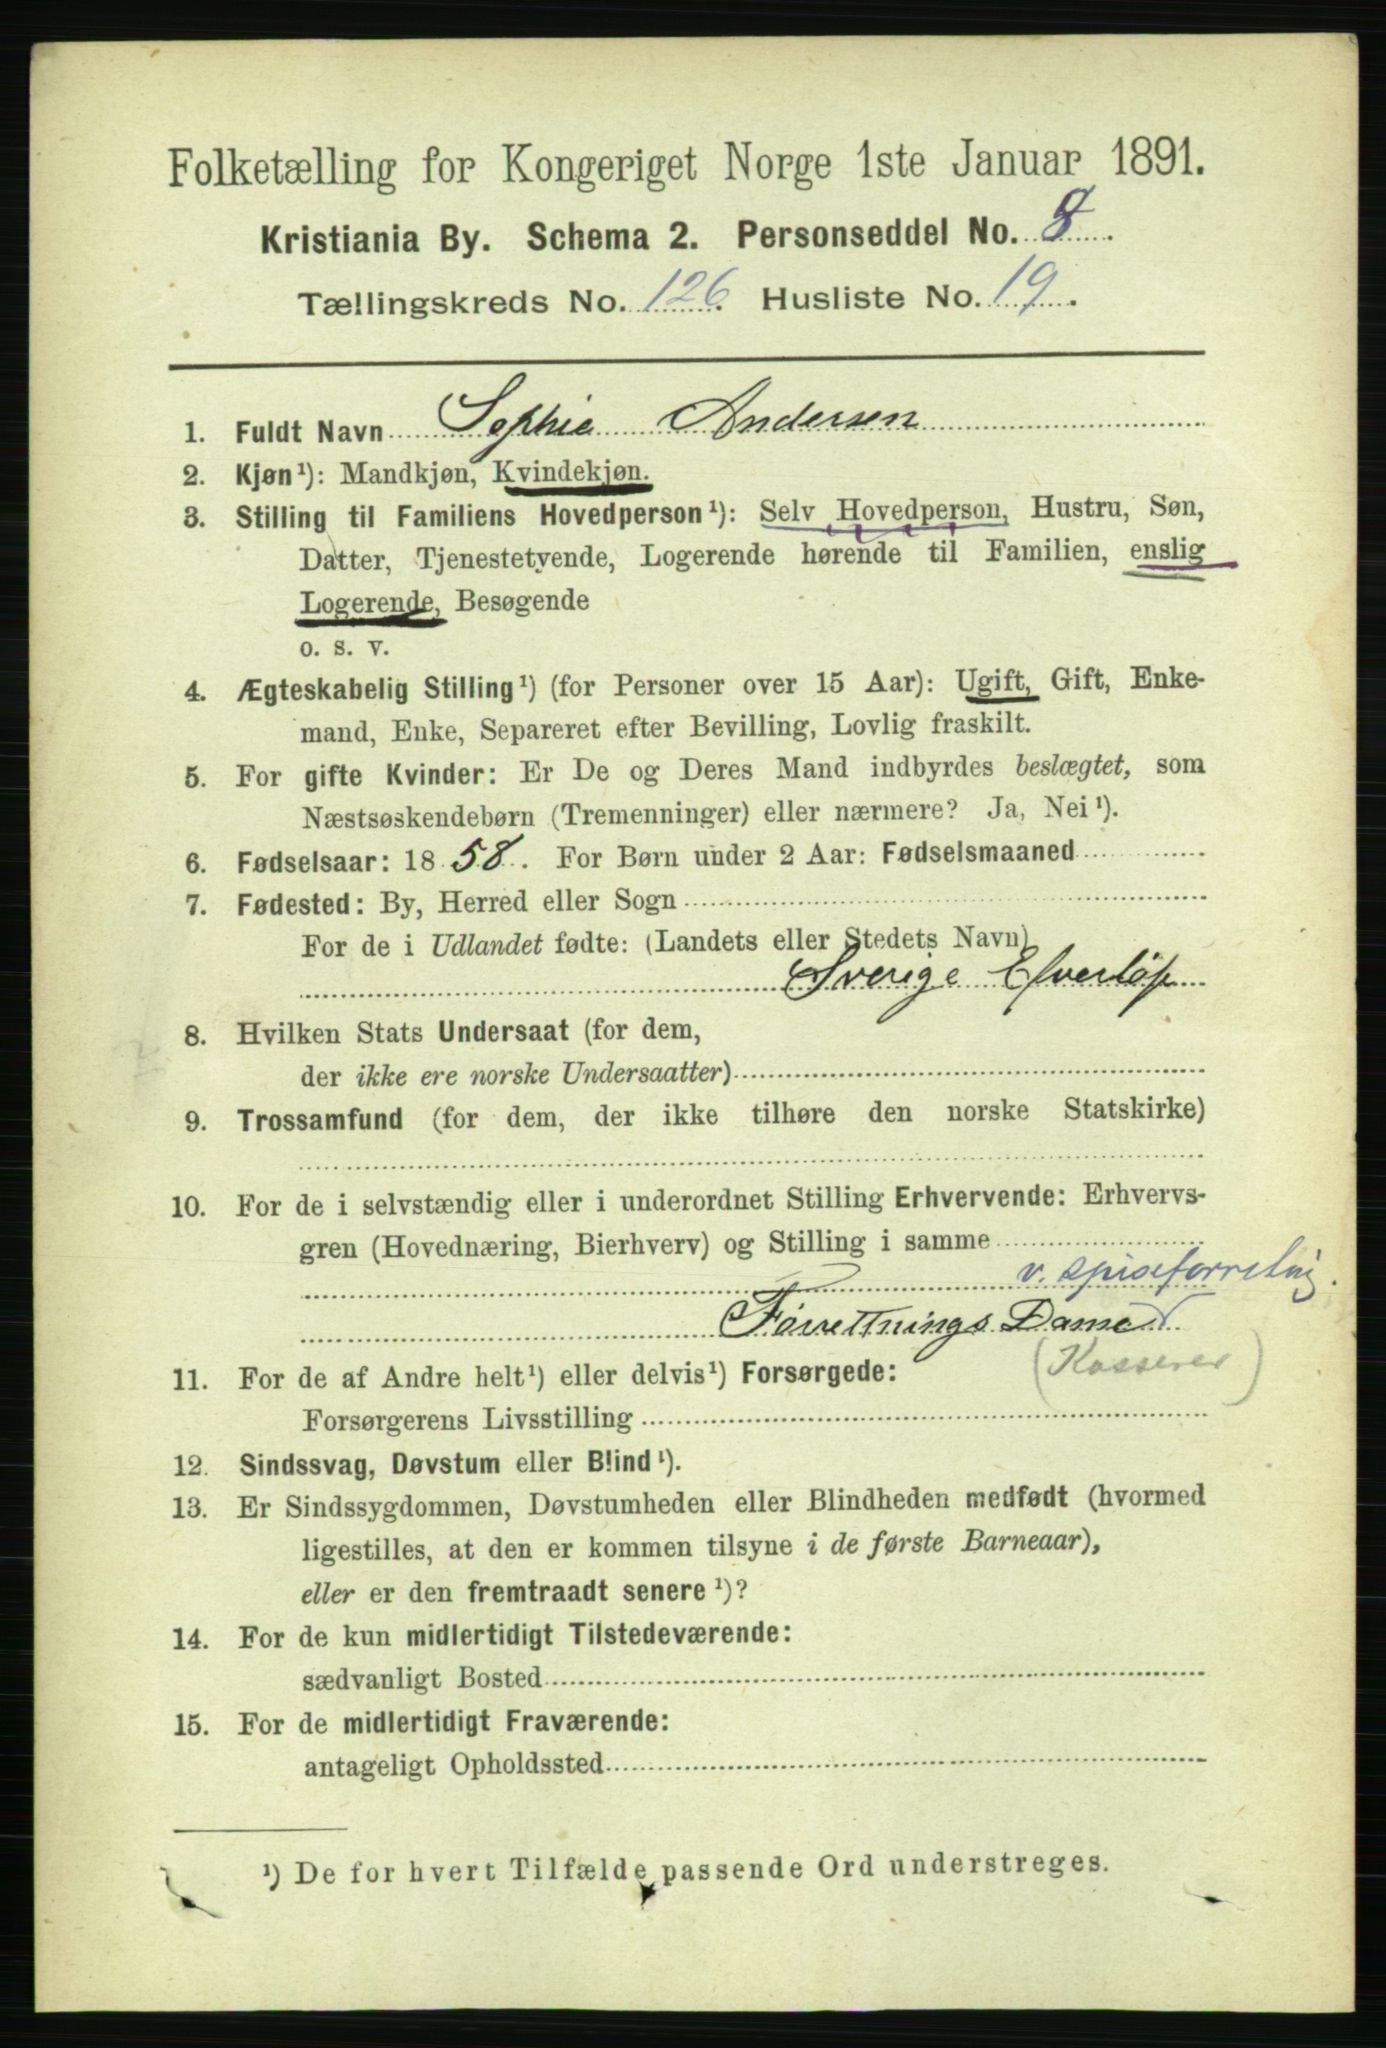 Folketælling for Kongeriget Norge 1ste Januar 1891.
Kristiania By. Schema 2. Personseddel No. 8.
Tællingskreds No. 126. Husliste No. 19.
1. Fuldt Navn Sophie Andersen
2. Kjøn¹): Mandkjøn, Kvindekjøn.
3. Stilling til Familiens Hovedperson¹): Selv Hovedperson, Hustru, Søn,
Datter, Tjenestetyende, Logerende hørende til Familien, enslig
Logerende, Besøgende
o. s. v.
4. Ægteskabelig Stilling¹) (for Personer over 15 Aar): Ugift, Gift, Enke-
mand, Enke, Separeret efter Bevilling, Lovlig fraskilt.
5. For gifte Kvinder: Er De og Deres Mand indbyrdes beslægtet, som
Næstsøskendebørn (Tremenninger) eller nærmere? Ja, Nei¹).
6. Fødselsaar: 1858. For Børn under 2 Aar: Fødselsmaaned
7. Fødested: By, Herred eller Sogn
For de i Udlandet fødte: (Landets eller Stedets Navn)
Sverige Elverløp
8. Hvilken Stats Undersaat (for dem,
der ikke ere norske Undersaatter)
9. Trossamfund (for dem, der ikke tilhøre den norske Statskirke)
10. For de i selvstændig eller i underordnet Stilling Erhvervende: Erhvervs-
gren (Hovednæring, Bierhverv) og Stilling i samme
v. spiseforretning.
Forrettnings Dame
(Kasserer)
11. For de af Andre helt¹) eller delvis¹) Forsørgede:
Forsørgerens Livsstilling
12. Sindssvag, Døvstum eller Blind¹).
13. Er Sindssygdommen, Døvstumheden eller Blindheden medfødt (hvormed
ligestilles, at den er kommen tilsyne i de første Barneaar),
eller er den fremtraadt senere¹)?
14. For de kun midlertidigt Tilstedeværende:
sædvanligt Bosted
15. For de midlertidigt Fraværende:
antageligt Opholdssted
¹) De for hvert Tilfælde passende Ord understreges.